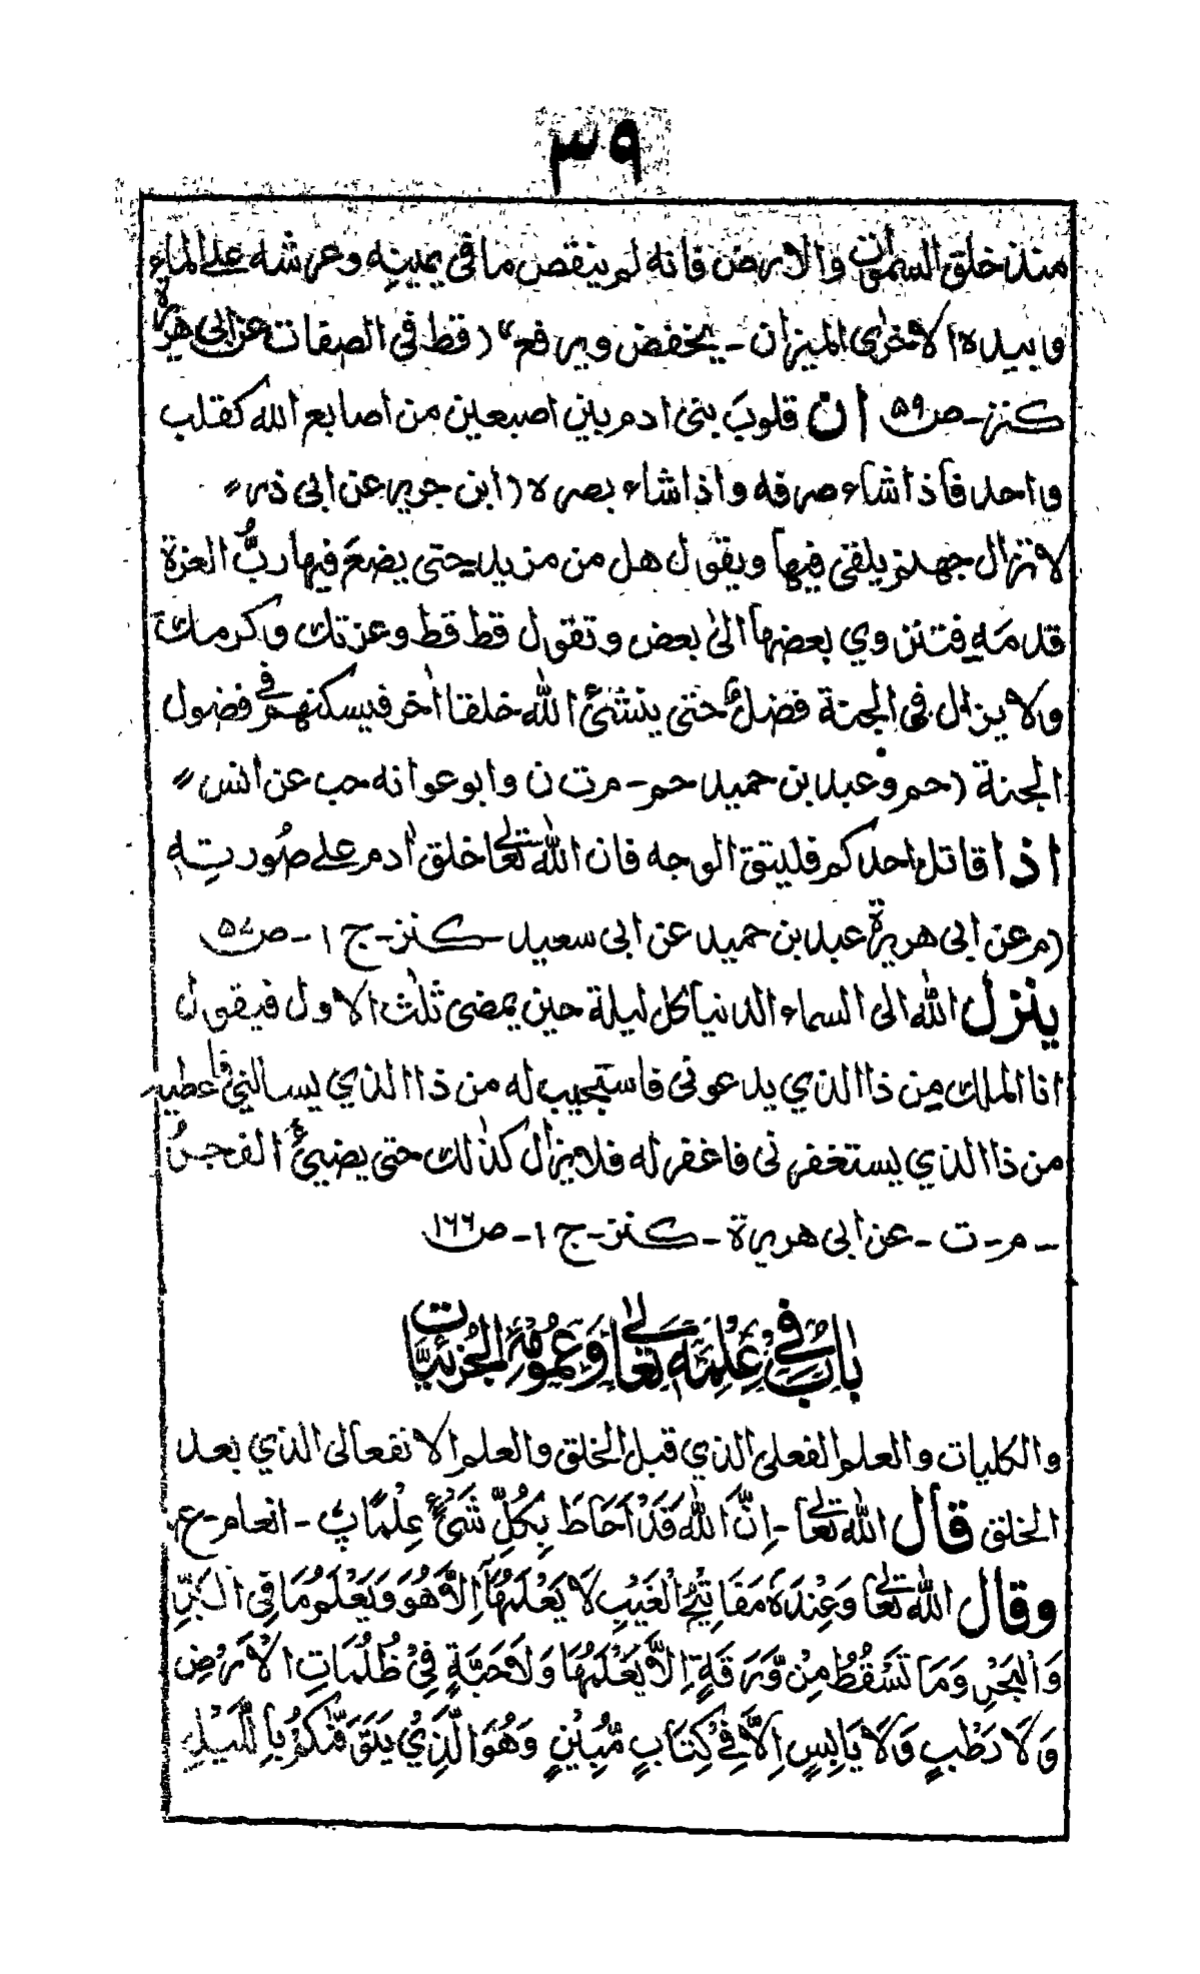 ۳۹
منذ خلق السمٰوٰت والارض فانه لم ينقص ما فى يمينه وعرشه على الماء
وبيده الاخرى الميزان - يخفض ويرفع" (قط فى الصفات عن ابى هريرة
كنز - ص ۵۹ ان قلوبَ بنى ادم بين اصبعين من اصابع الله كقلب
واحد فاذا شاء صرفه واذا شاء بصره (ابن جرير عن ابى ذر "
لا تزال جهنم يلقى فيها ويقول هل من مزيد حتى يضعَ فيها ربُّ العزة
قدمَه فتنزوي بعضها الىٰ بعض وتقول قط قط وعزتك وكرمك
ولا يزال فى الجنة فضلٌ حتى ينشئ الله خلقا اٰخر فيسكنهم فى فضول
الجنة (حم وعبد بن حميد حم - م ت ن وابو عوانه حب عن انس "
اذا قاتل احدكم فليتق الوجه فان الله تعالىٰ خلق اٰدم على صُورتِه
(م عن ابى هريرة عبد بن حميد عن ابى سعيد - كنز - ج ۱ - ص ۵۷
ينزل الله الى السماء الدنيا كل ليلة حين يمضى ثلث الاول فيقول
انا الملك مِن ذا الذي يدعونى فاستجيب له من ذا الذي يسالنى فاعطيه
من ذا الذي يستغفرنى فاغفر له فلا يزال كذٰلك حتى يضيئَ الفجرُ
- م - ت - عن ابى هريرة - كنز - ج ۱ - ص ۱۶۶
بابٌ فِى عِلْمِهٖ تعالىٰ وَعُمُومِهٖ الجُزئيَّات
والكليات والعلم الفعلى الذي قبل الخلق والعلم الانفعالى الذي بعد
الخلق قال الله تعالىٰ - اِنَّ اللهَ قَدْ اَحَاطَ بِكُلِّ شَىْءٍ عِلْمًا پ - انعام - ع
وقال الله تعالىٰ وَعِنْدَهٗ مَفَاتِيْحُ الْغَيْبِ لَا يَعْلَمُهَا اِلَّا هُوَ وَيَعْلَمُ مَا فِى الْبَرِّ
وَالْبَحْرِ وَمَا تَسْقُطُ مِنْ وَّرَقَةٍ اِلَّا يَعْلَمُهَا وَلَا حَبَّةٍ فِىْ ظُلُمَاتِ الْاَرْضِ
وَلَا رَطْبٍ وَلَا يَابِسٍ اِلَّا فِىْ كِتَابٍ مُّبِيْنٍ وَهُوَ الَّذِىْ يَتَوَفّٰكُمْ بِاللَّيْلِ